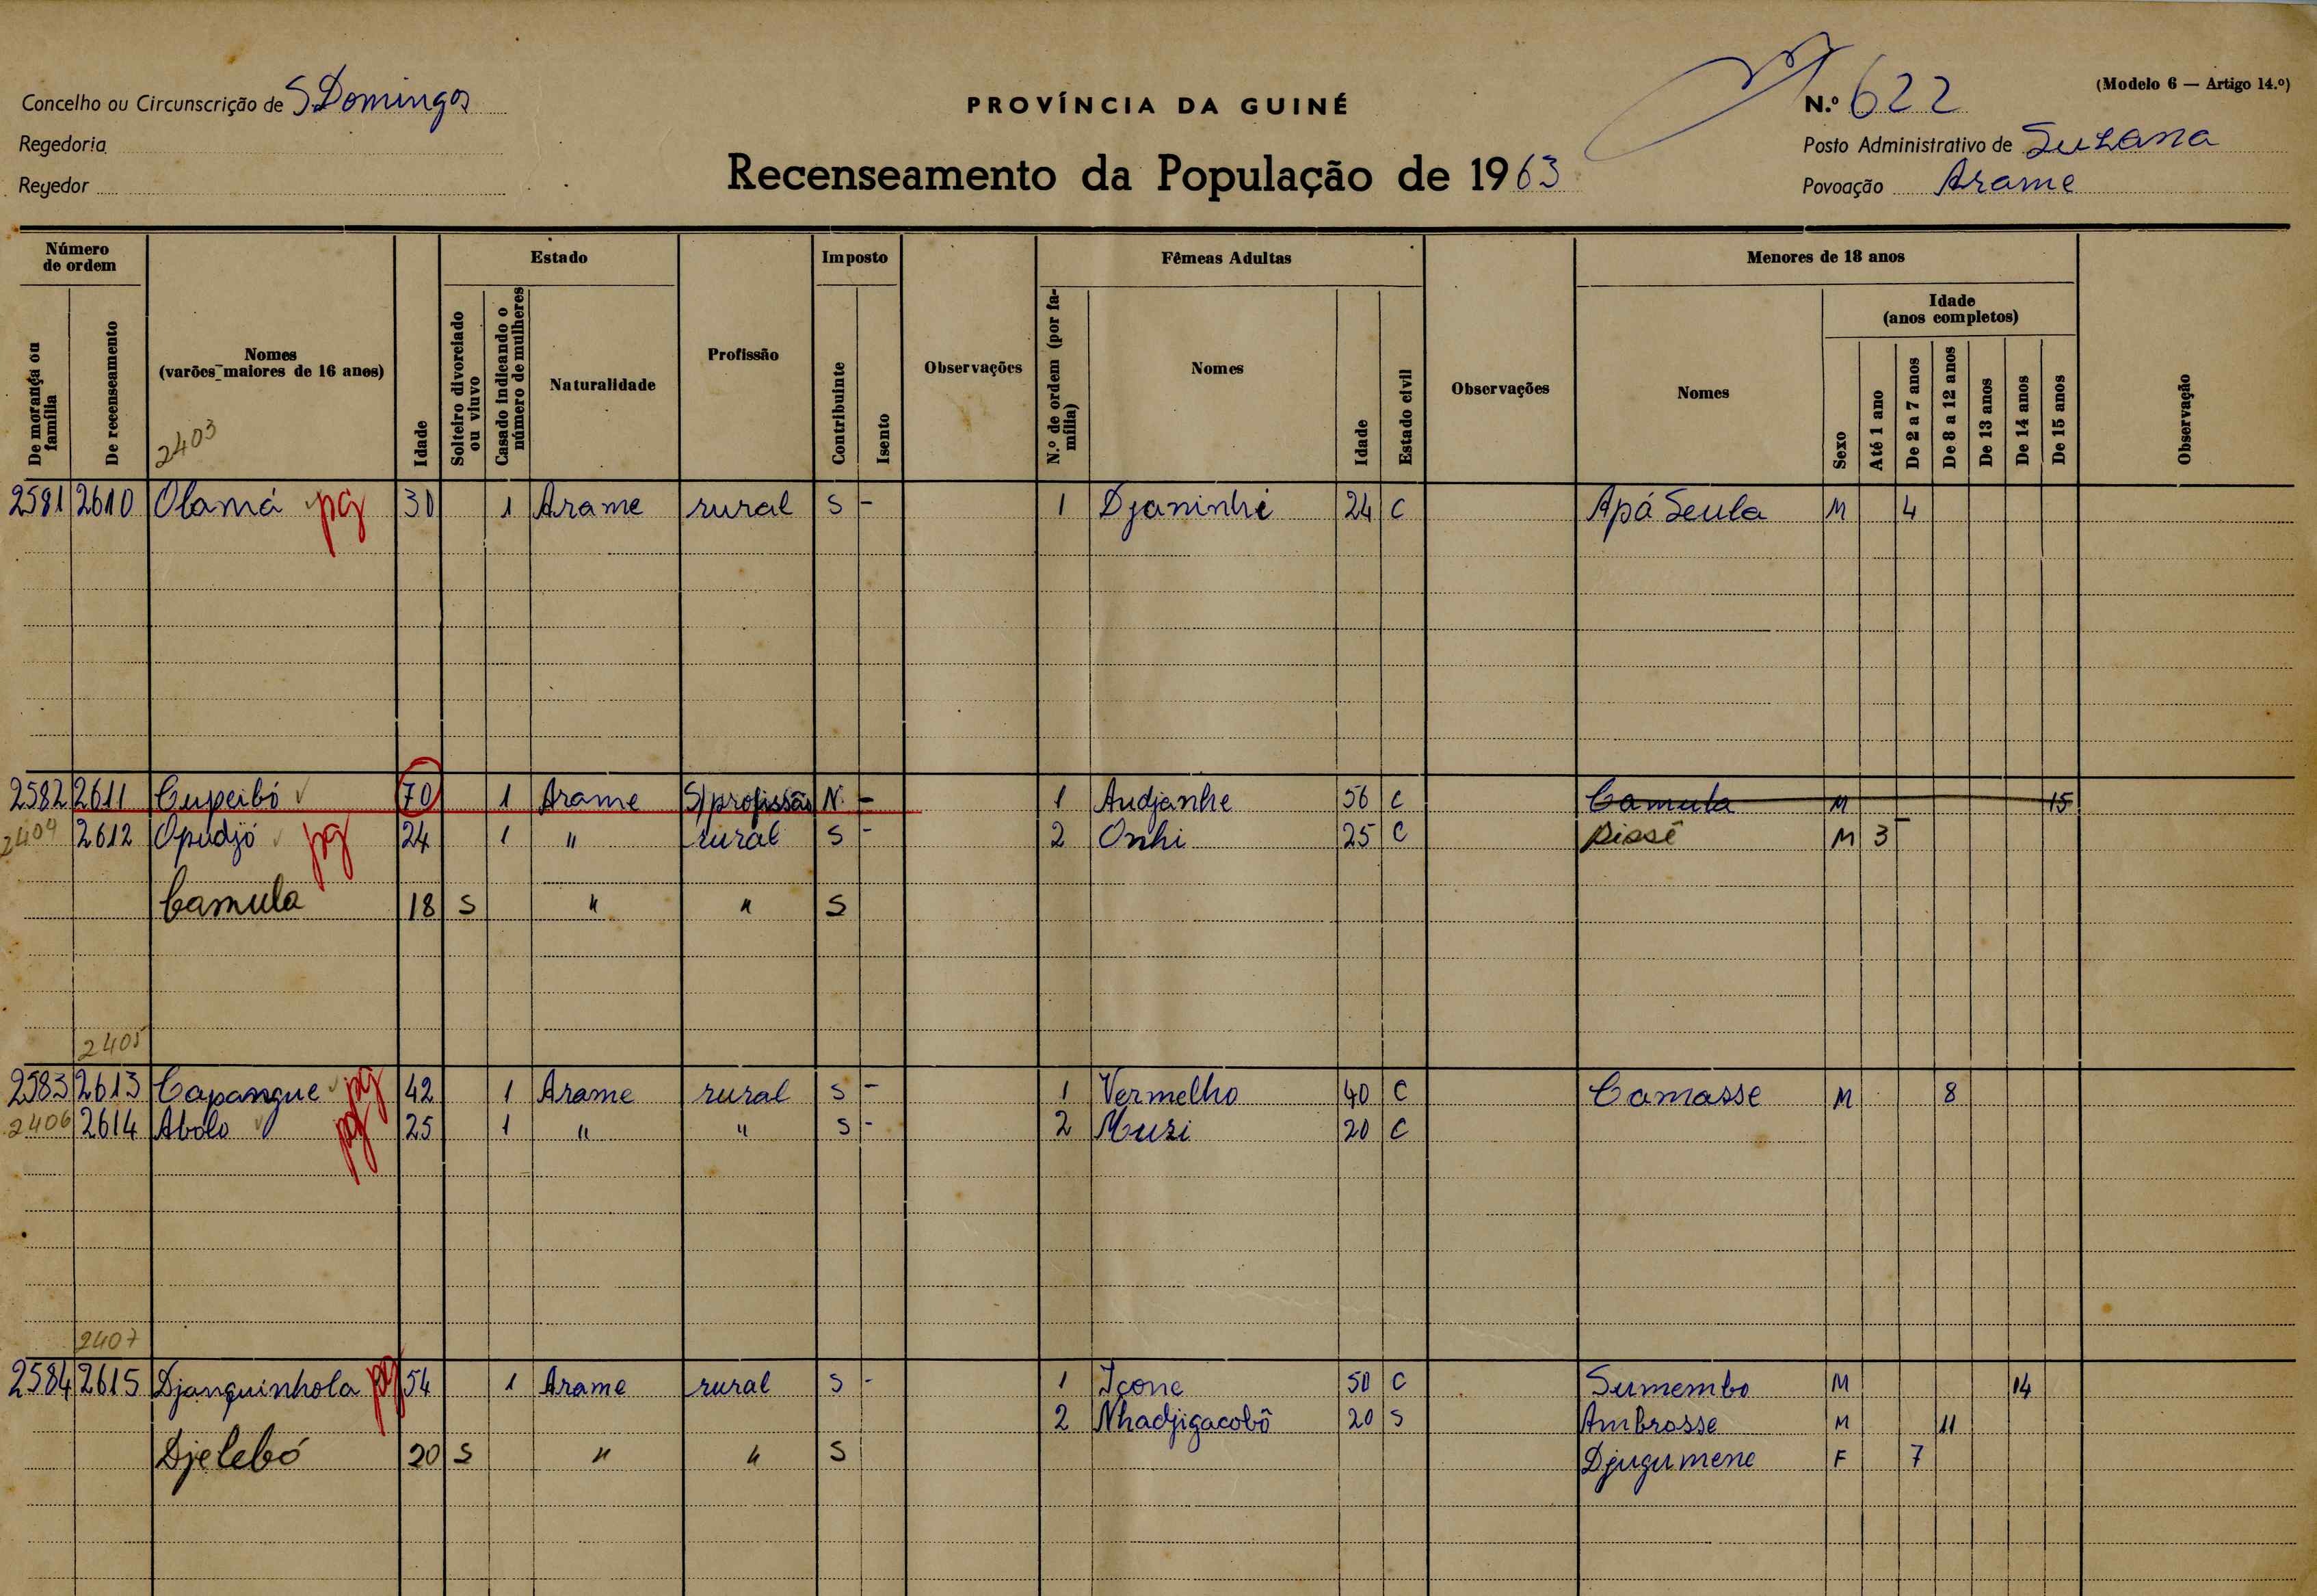 Concelho ou Circunscrição de S. Domingos
Regedoria
Regedor
PROVÍNCIA DA GUINÉ
Recenseamento da População de 1963
(Modelo 6 — Artigo 14.º)
N.º 622
Posto Administrativo de Suzana
Povoação Arame
Número de ordem
De morança ou família
De recenseamento
Nomes (varões maiores de 16 anos)
2403
Idade
Estado
Solteiro divorciado ou viuvo
Casado indicando o número de mulheres
Naturalidade
Profissão
Imposto
Contribuinte
Isento
Observações
Fêmeas Adultas
N.º de ordem (por família)
Nomes
Idade
Estado civil
Observações
Menores de 18 anos
Nomes
Sexo
Idade (anos completos)
Até 1 ano
De 2 a 7 anos
De 8 a 12 anos
De 13 anos
De 14 anos
De 15 anos
Observação
2581 2610 Olamá pg 30 1 Arame rural S - 1 Djaninhe 24 C Apá Seula M 4
2582 2611 Cupeibó 70 1 Arame S/profissão N. - 1 Audjanhe 56 C Camula M 15
2404 2612 Opudjó pg 24 1 " rural S - 2 Onhi 25 C M 3
Camula 18 S " " S
2405
2583 2613 Capangue pg 42 1 Arame rural S - 1 Vermelho 40 C Camasse M 8
2406 2614 Abolo pg 25 1 " " S - 2 Muzi 20 C
2407
2584 2615 Djanquinhola pg 54 1 Arame rural S - 1 Içone 50 C Sumembo M 14
2 Nhadjigacobô 20 S Ambrosse M 11
Djelebó 20 S " " S Djugumene F 7